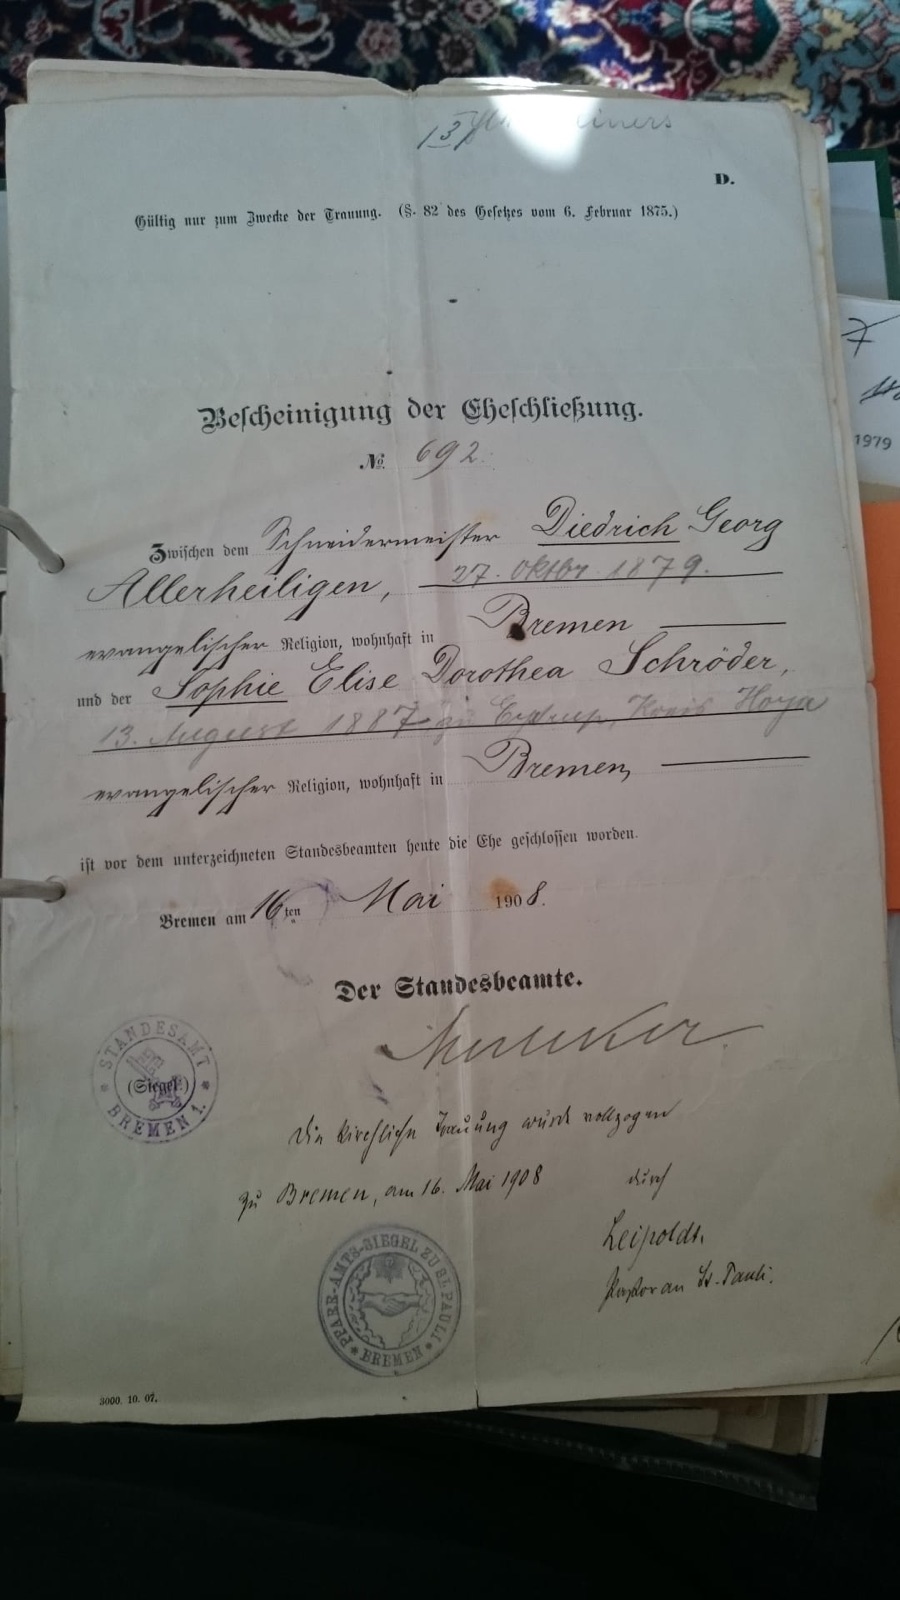 13
D.
Gültig nur zum Zwecke der Trauung. (§. 82 des Gesetzes vom 6. Februar 1875.)
Bescheinigung der Eheschließung.
No. 692.
Zwischen dem Schneidermeister Diedrich Georg
Allerheiligen, 27. Oktbr. 1879.
evangelischer Religion, wohnhaft in Bremen
und der Sophie Elise Dorothea Schröder,
13. August 1887 zu Eystrup, Kreis Hoya
evangelischer Religion, wohnhaft in Bremen,
ist vor dem unterzeichneten Standesbeamten heute die Ehe geschlossen worden.
Bremen am 16ten Mai 1908.
Der Standesbeamte.
STANDESAMT
(Siegel.)
BREMEN 1.
Die kirchliche Trauung wurde vollzogen
zu Bremen, am 16. Mai 1908 durch
Leipoldt.
Pastor an St. Pauli.
PFARR-AMTS-SIEGEL ZU ST. PAULI
BREMEN
3000. 10. 07.
7
1979